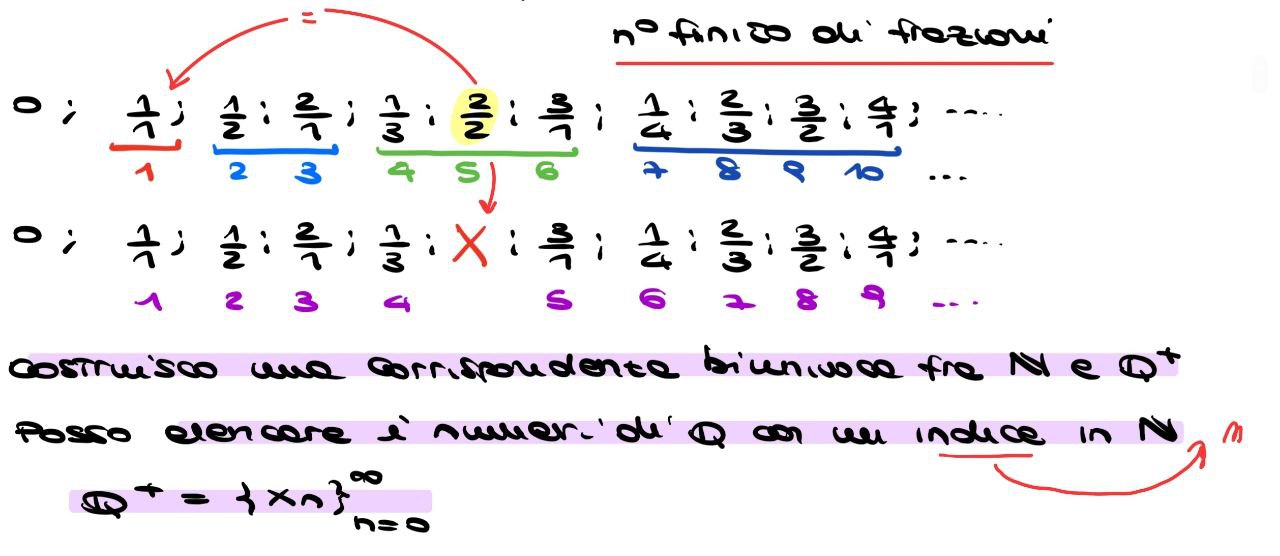 =
n° finito di frazioni
0 ; 1/1 ; 1/2 ; 2/1 ; 1/3 ; 2/2 ; 3/1 ; 1/4 ; 2/3 ; 3/2 ; 4/1 ; ....
1 2 3 4 5 6 7 8 9 10 ...
0 ; 1/1 ; 1/2 ; 2/1 ; 1/3 ; X ; 3/1 ; 1/4 ; 2/3 ; 3/2 ; 4/1 ; ....
1 2 3 4 5 6 7 8 9 ...
costruisco una corrispondenza biunivoca fra ℕ e ℚ⁺
Posso elencare i numeri di ℚ con un indice in ℕ n
ℚ⁺ = {xn}^∞_{n=0}